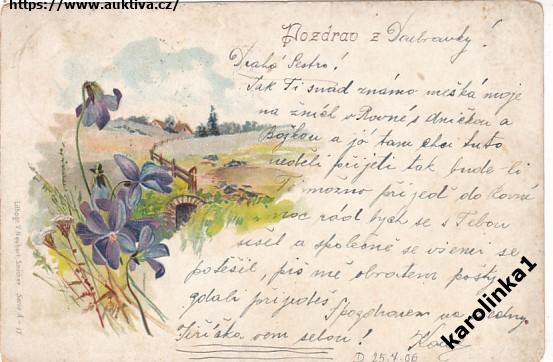 https://www.auktiva.cz/
Pozdrav z Doubravky!
Drahá Sestro!
Jak Ti snad známo mešká moje
na žních v Rovné s dničkou a
Bojkou a já tam chci tuto
neděli přijeti tak bude-li
Ti možno přijeď do Rovné
moc rád bych se s Tebou
sešel a společně se všemi se
potěšil, piš mě obratem pošty
zdali přijedeš Spozdravem na všecky
Jiříčka vem sebou!
D 25.7.06
Lithogr. V. Neubert, Smíchov. Serie A - 11
karolinka1